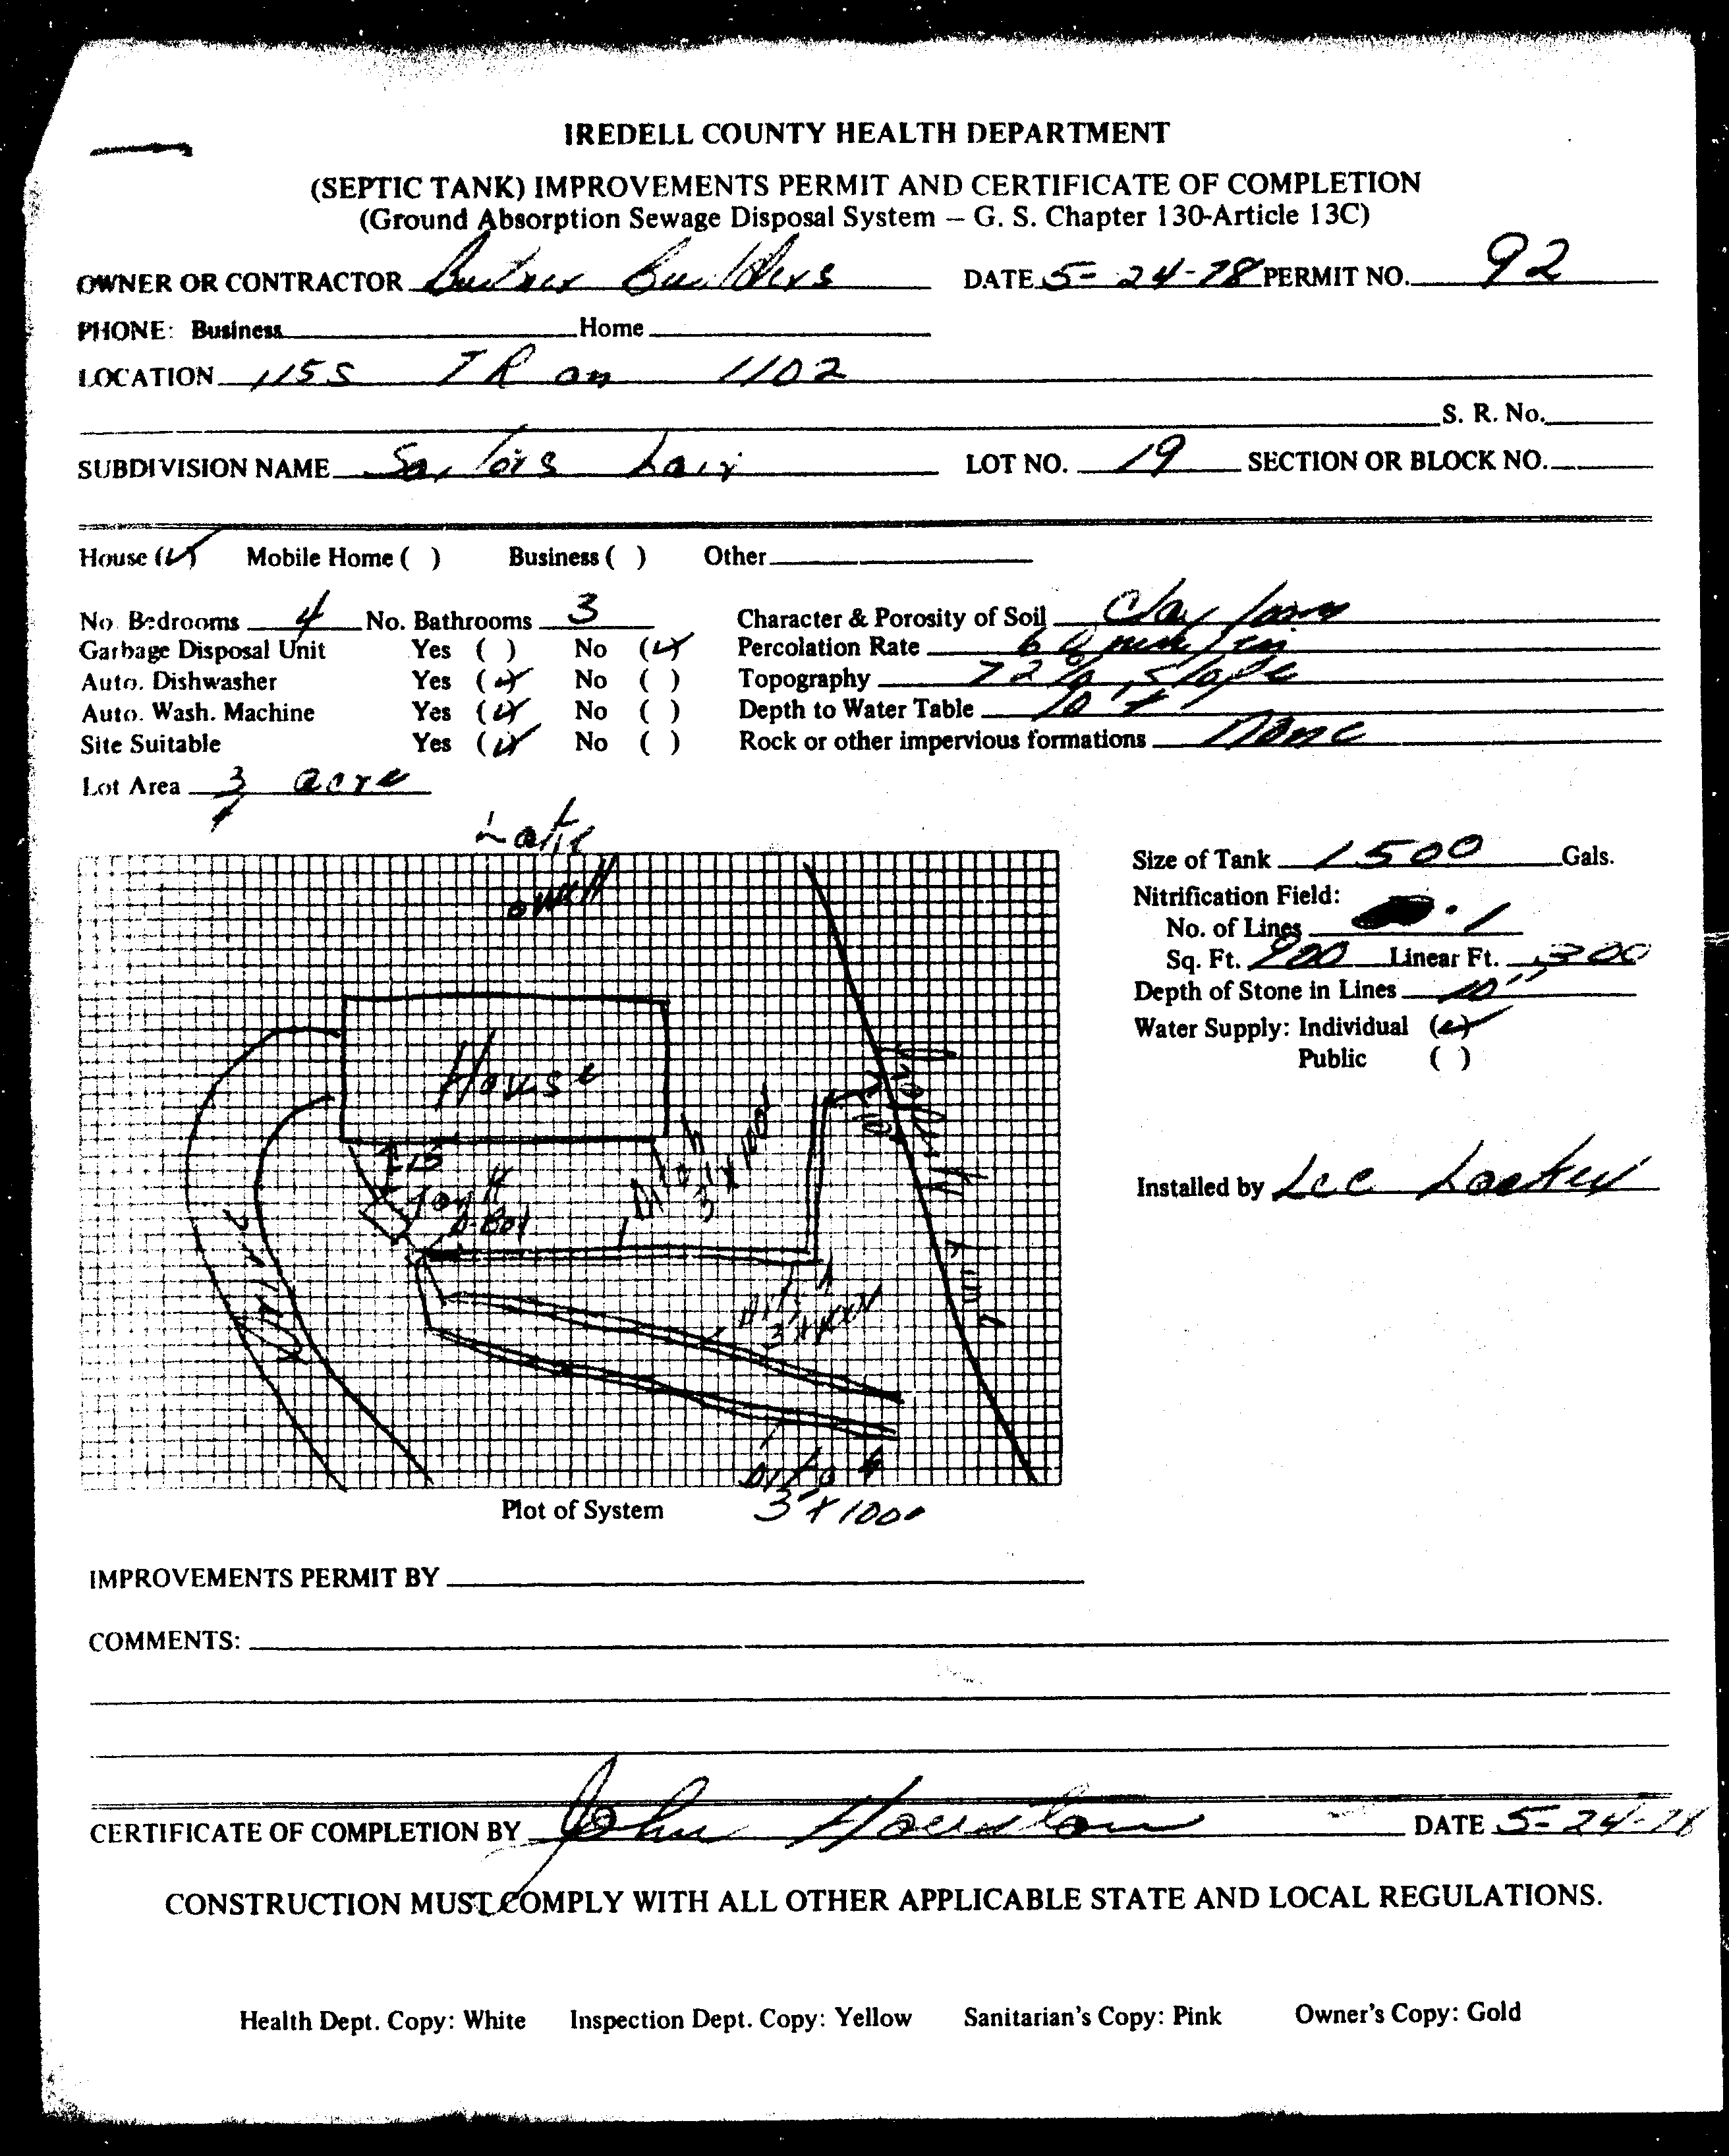 IREDELL COUNTY HEALTH DEPARTMENT
(SEPTIC TANK) IMPROVEMENTS PERMIT AND CERTIFICATE OF COMPLETION
(Ground Absorption Sewage Disposal System — G. S. Chapter 130-Article 13C)
OWNER OR CONTRACTOR Builders DATE 5-24-78 PERMIT NO. 92
PHONE: Business Home
LOCATION 115S TR on 1102
S. R. No.
SUBDIVISION NAME Sailors Lair LOT NO. 19 SECTION OR BLOCK NO.
House (✓) Mobile Home ( ) Business ( ) Other
No. Bedrooms 4 No. Bathrooms 3 Character & Porosity of Soil Clay loam
Garbage Disposal Unit Yes ( ) No (✓) Percolation Rate 60 min/in
Auto. Dishwasher Yes (✓) No ( ) Topography 72% slope
Auto. Wash. Machine Yes (✓) No ( ) Depth to Water Table 10'+
Site Suitable Yes (✓) No ( ) Rock or other impervious formations None
Lot Area 3/4 acre
Lake
well
House
15'
Tank
D-Box
Ditch
3' x 100'
Drive
Property
Line
Ditch
3' x 100'
Ditch
3' x 100'
Plot of System
Size of Tank 1500 Gals.
Nitrification Field:
No. of Lines 1
Sq. Ft. 900 Linear Ft. 300
Depth of Stone in Lines 10"
Water Supply: Individual (✓)
Public ( )
Installed by Lee
IMPROVEMENTS PERMIT BY
COMMENTS:
CERTIFICATE OF COMPLETION BY John Houston DATE 5-24-78
CONSTRUCTION MUST COMPLY WITH ALL OTHER APPLICABLE STATE AND LOCAL REGULATIONS.
Health Dept. Copy: White Inspection Dept. Copy: Yellow Sanitarian's Copy: Pink Owner's Copy: Gold